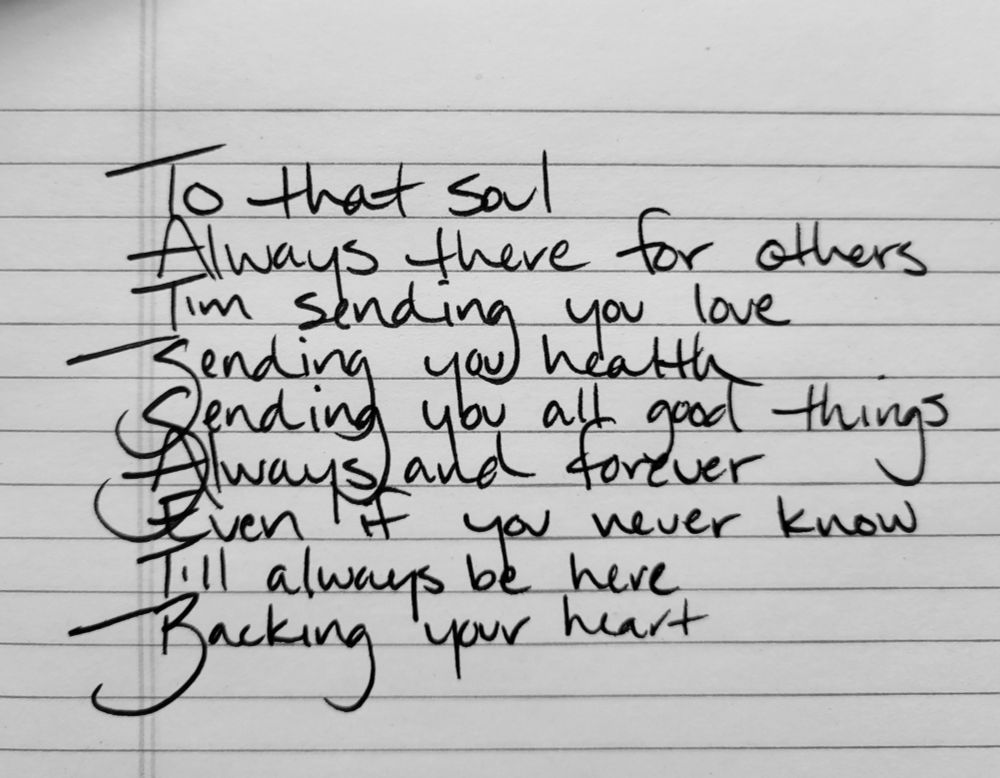 To that soul
Always there for others
I'm sending you love
Sending you health
Sending you all good things
Always and forever
Even if you never know
I'll always be here
Backing your heart